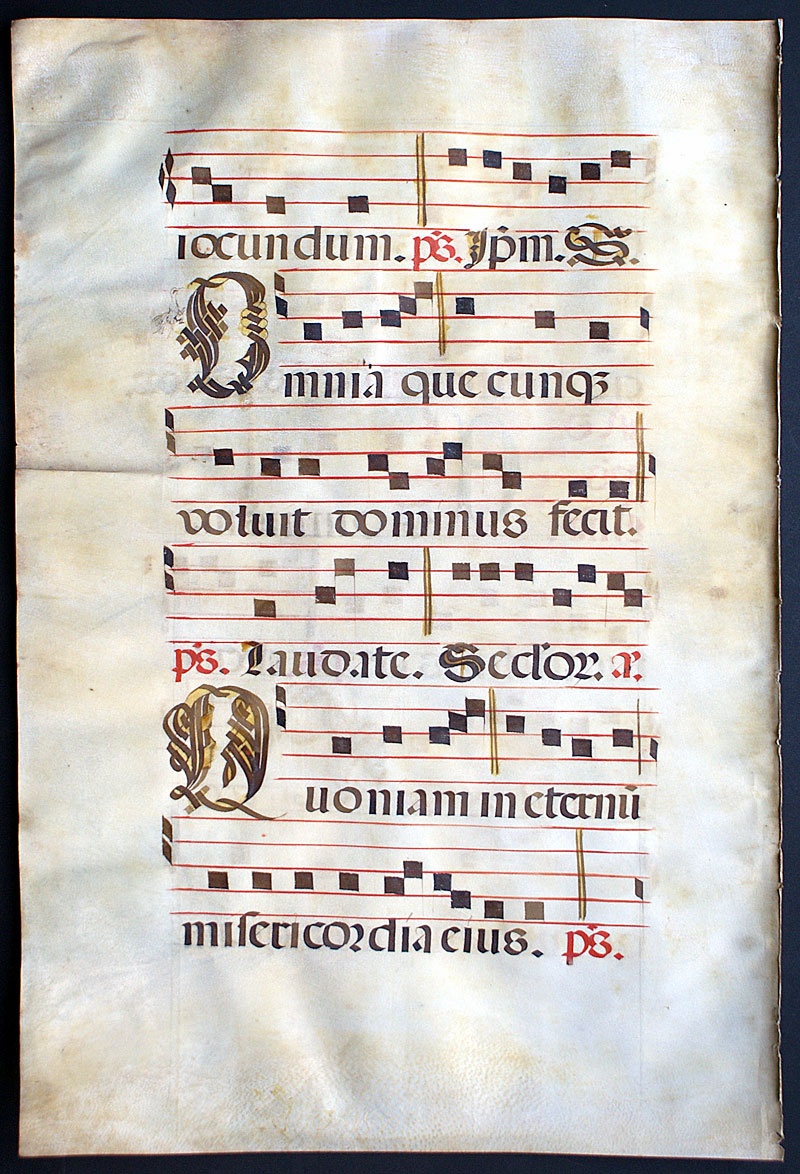 iocundum. ps. Ip̄m. S.
Omnia que cunqꝫ
voluit dominus fecit.
ps. Laudate. Seclor. a.
Quoniam in eternū
misericordia eius. ps.